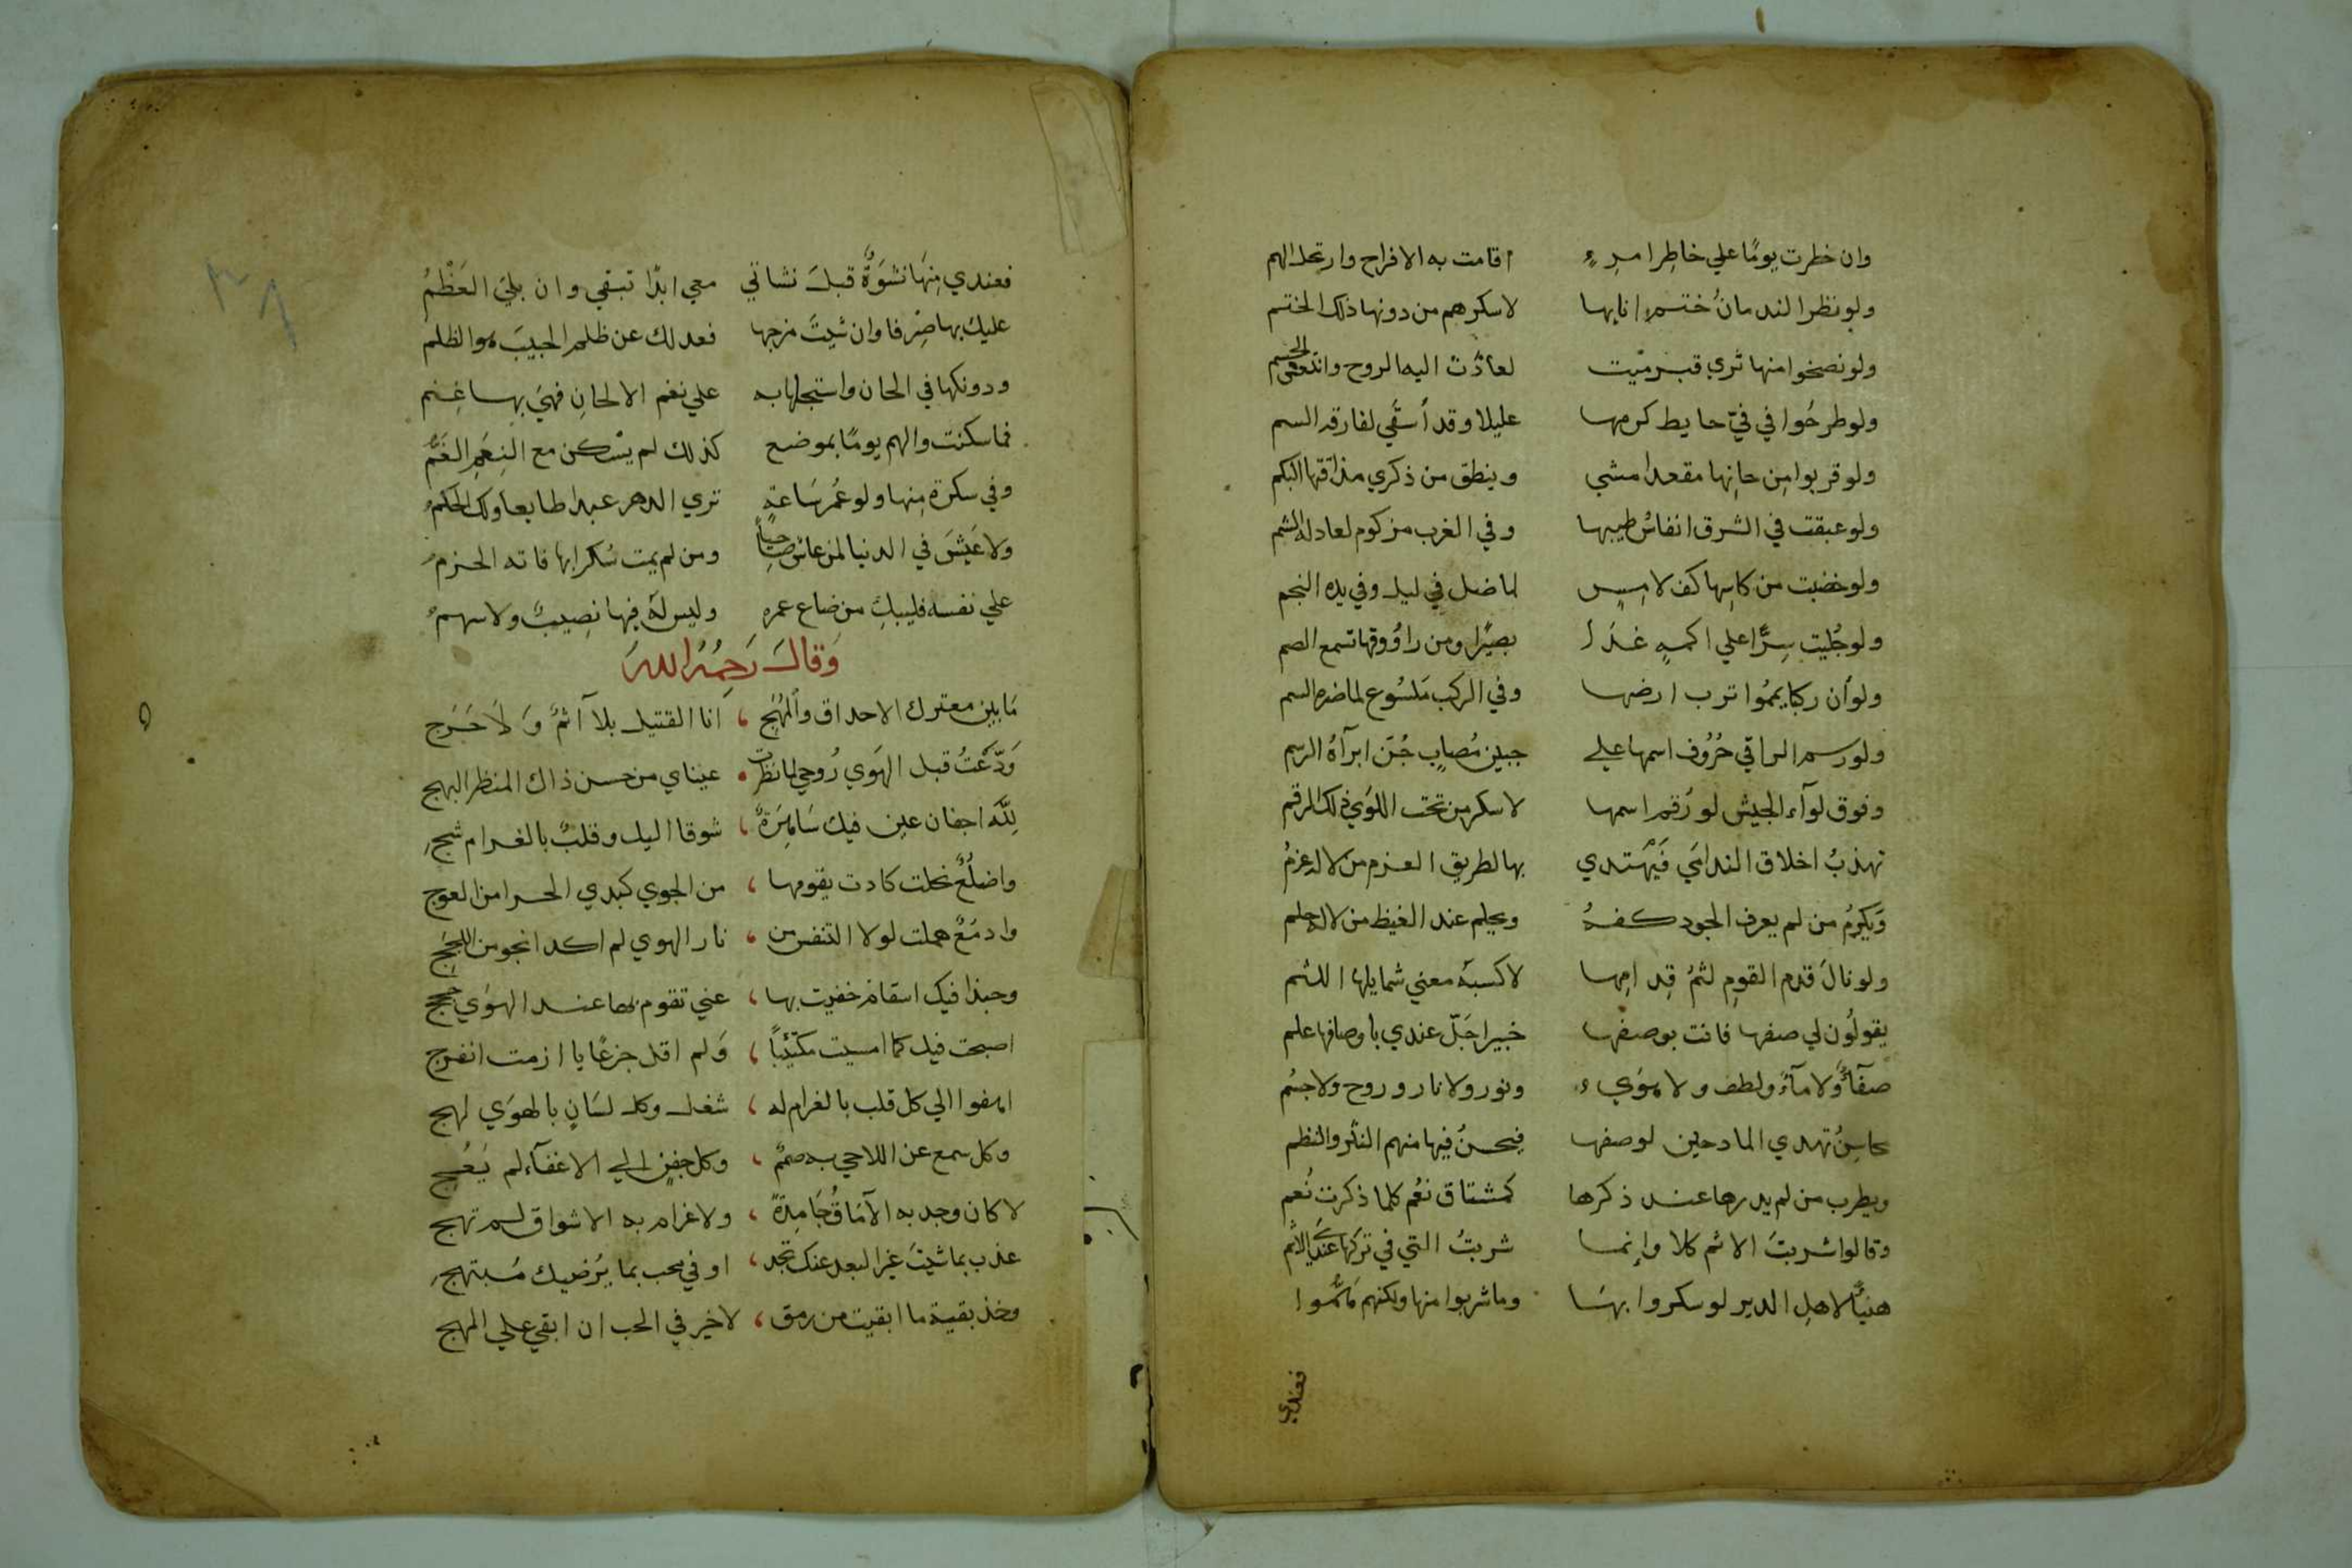 وان خطرت يومًا علي خاطِر امرءٍ اقامت به الافراح وارتحل الهم
ولو نظر الندمانُ ختم انايها لاسكرهم من دونها ذلك الختم
ولو نضحوا منها ثري قبر ميت لعادَت اليه الروح وانتعش الجسم
ولو طرحُوا في فيّ حايط كرمها عليلا وقد أسقَي لفارقه السم
ولو قربوا مِن حانِها مقعدا مشي وينطق من ذكري مذاقتها البكم
ولو عبقت في الشرق انفاسُ طيبها وفي الغرب مزكوم لعاد له الشم
ولو خضبت من كاسِها كف لامِسٍ لما ضل في ليل وفي يده النجم
ولو جُليت سِرًّا علي اكمهٍ غدَا بصيرًا ومن راووقها تسمع الصم
ولو أن ركبا يممُوا ترب ارضها وفي الركب مَلسُوع لما ضره السم
ولو رسم الراقي حُرُوف اسمها علي جبين مُصابٍ جُنّ ابرآهُ الرسم
وفوق لوآء الجيش لو رُقم اسمها لاسكر من تحت اللوَي ذلك الرقم
تهذبُ اخلاق الندامَي فَيَهْتدي بها لطريق العزم من لا له عزمُ
وَيكرمُ من لم يعرف الجود كفهُ ويحلم عند الغيظ من لا له حلم
ولو نالَ قدم القومِ لثمُ قِدامِها لاكسبهَ معني شمايلها اللثم
يقولُون لي صفها فانت بوصفها خبير اجَلّ عندي باوصافها علم
صفآءٌ ولا مآءٌ ولطف ولا هوَيء ونور ولا نار وروح ولا جسْم
محاسِنُ تهدي المادحين لوصفها فيحسنُ فيها منهم النثر والنظم
ويطرب من لم يدرها عند ذكرها كمشتاق نعْم كلما ذكرت نُعم
وقالوا شربتَ الاثم كلا وإنما شربتُ التي في تركها عندَي الاثم
هنيًّا لاهلِ الدير لو سكروا بهَا وما شربوا منها ولكنهم همُّوا
فعندي
فعندي مِنهَا نشوَةٌ قبلَ نشاتي معي ابدًا تبقي وان بليَ العَظْمُ
عليك بها صِرفا وان شيتَ مزجها فعدلك عن ظلم الحبيبَ هو الظلم
ودونكها في الحان واستجلها به علي نغم الالحانِ فهيَ بها غِنم
فما سكنت والهم يومًا بموضع كذلك لم يسْكن مع النِغَمِ الغَمُّ
وفي سكرة مِنها ولو عُمر سَاعةٍ تري الدهر عبدا طايعا ولك الحكمُ
ولا عَيْشَ في الدنيا لمن عاش صاحِيًا ومن لم يمت سُكرا بها فاته الحزمُ
علي نفسه فليبكِ من ضاع عمره وليس لهَ فيها نصِيبٌ ولا سهمُ
وَقالَ رَحِمُهُ اللهَ
مَا بين معترك الاحداق والمُهَج انا القتيل بلآ اثمٌ وَلَا حَرَج
وَدّعْتُ قبل الهَوي رُوحِي لما نظرت عيناي من حسن ذاك المنظر البهج
لِلّه اجفان عين فيك سَاهِرَةٌ شوقا اليك وقلبٌ بالغرام شجِ
واضلُعٌ نحلت كادت يقومها من الجوي كبدي الحرا من العوج
وادمُعٌ هملت لولا التنفس من نار الهوي لم اكد انجو من اللجَج
وحبذا فيك اسقام خفيت بها عني تقوم بها عند الهوَي حججِ
اصبحت فيك كما امسيت مكتئِبًا وَلم اقل جزعًا يا ازمت انفرج
اهفوا الي كل قلب بالغرام له شغل وكل لسَانٍ بالهوَي لهج
وكل سمع عن اللاحي به صممٌ وكل جفنٍ الي الاغفآء لم يَعُج
لا كان وجد به الآمَاقُ جَامِدةً ولا غرام به الاشواق لم تهج
عذب بما شيتَ غير البعد عنك تجد اوفي محب بما يُرضيك مُبتهجِ
وخذ بقية ما ابقيت من رمق لا خير في الحب ان ابقي علي المهج